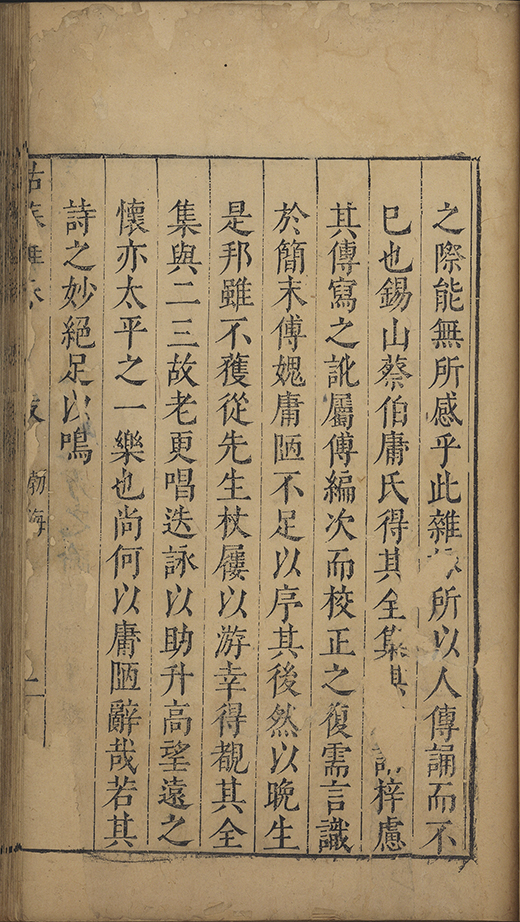 之際能無所感乎此雜所以人傳誦而不
已也錫山蔡伯庸氏得其全集梓慮
其傳寫之訛屬傅編次而校正之復需言識
於簡末傅媿庸陋不足以序其後然以晚生
是邦雖不獲從先生杖屨以游幸得覩其全
集與二三故老更唱迭詠以助升高望遠之
懷亦太平之一樂也尚何以庸陋辭哉若其
詩之妙絕足以鳴
渤海